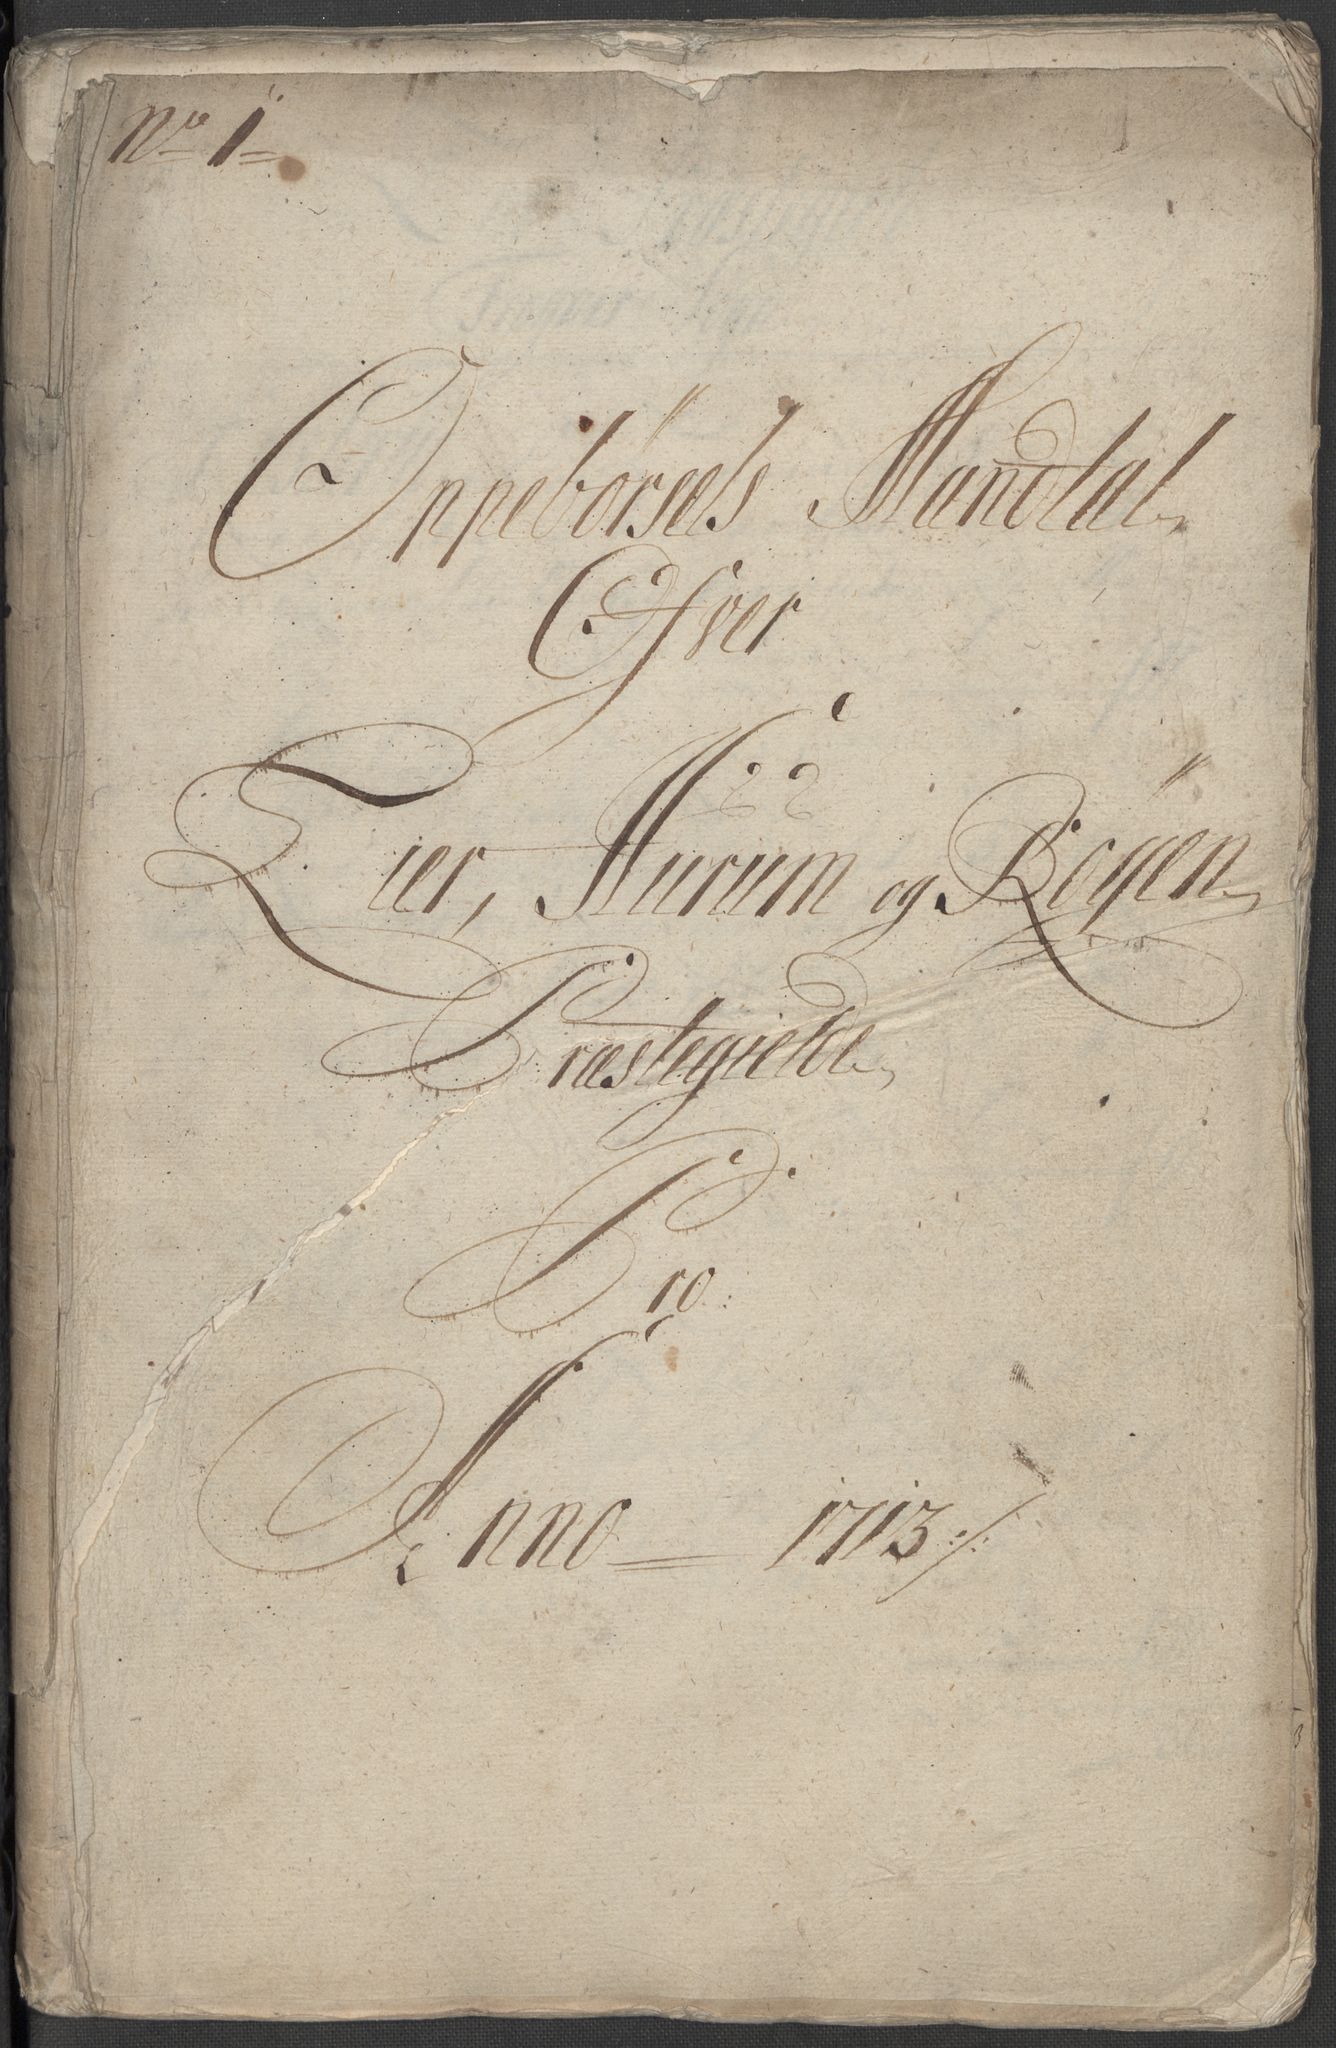 No 1
Oppebörsels Mandtal
Ofver
Lier, Hurum og Rögen
Præstegielde
Pro
Anno 1713